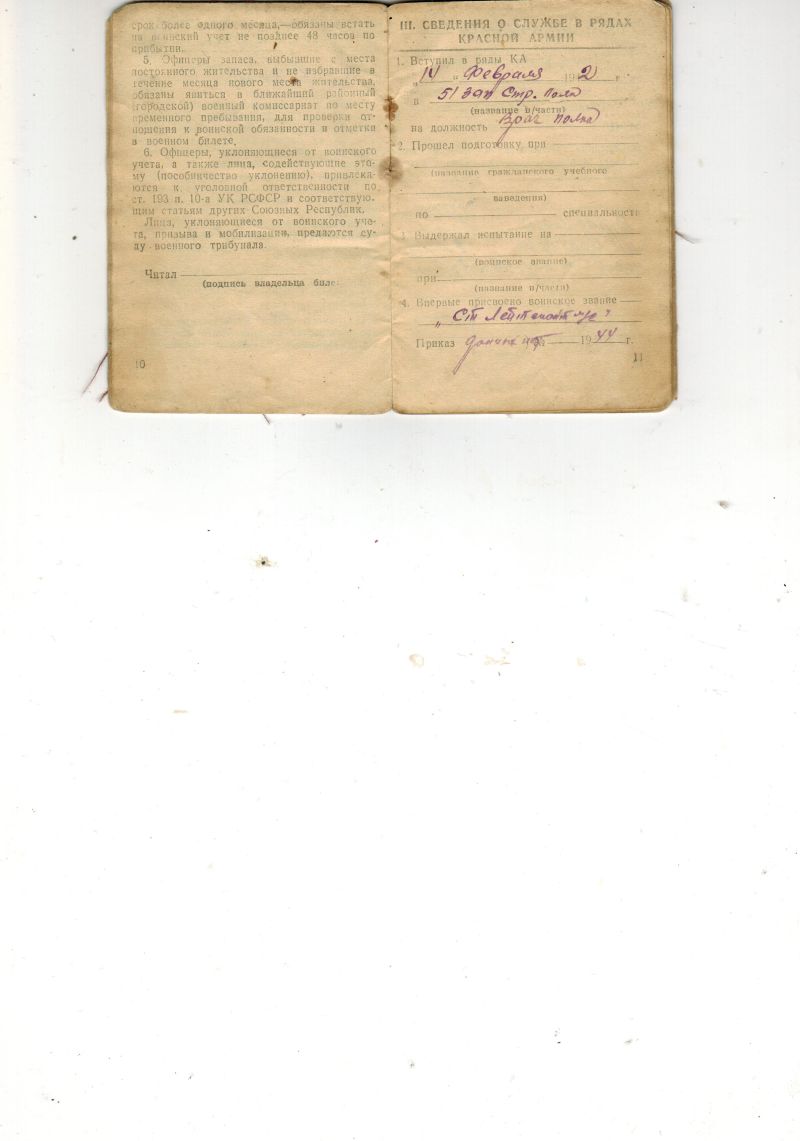 срок более одного месяца,—обязаны встать
на воинский учет не позднее 48 часов по
прибытии.
5. Офицеры запаса, выбывшие с места
постоянного жительства и не избравшие в
течение месяца нового места жительства,
обязаны явиться в ближайший районный
(городской) военный комиссариат по месту
временного пребывания, для проверки от-
ношения к воинской обязанности и отметки
в военном билете.
6. Офицеры, уклоняющиеся от воинского
учета, а также лица, содействующие это-
му (пособничество уклонению), привлека-
ются к уголовной ответственности по
ст. 193 п. 10-а УК РСФСР и соответствую-
щим статьям других Союзных Республик.
Лица, уклоняющиеся от воинского уче-
та, призыва и мобилизации, предаются су-
ду военного трибунала.
Читал
(подпись владельца биле
10
III. СВЕДЕНИЯ О СЛУЖБЕ В РЯДАХ
КРАСНОЙ АРМИИ
1. Вступил в ряды КА
" " Февраля 1942 г.
в 51 зап Стр. полк
(название в/части)
на должность Врач полка
2. Прошел подготовку при
(название гражданского учебного
заведения)
по специальность
3. Выдержал испытание на
(воинское звание)
при
(название в/части)
4. Впервые присвоено воинское звание
"Ст Лейтенант м/с"
Приказ 1944 г.
11